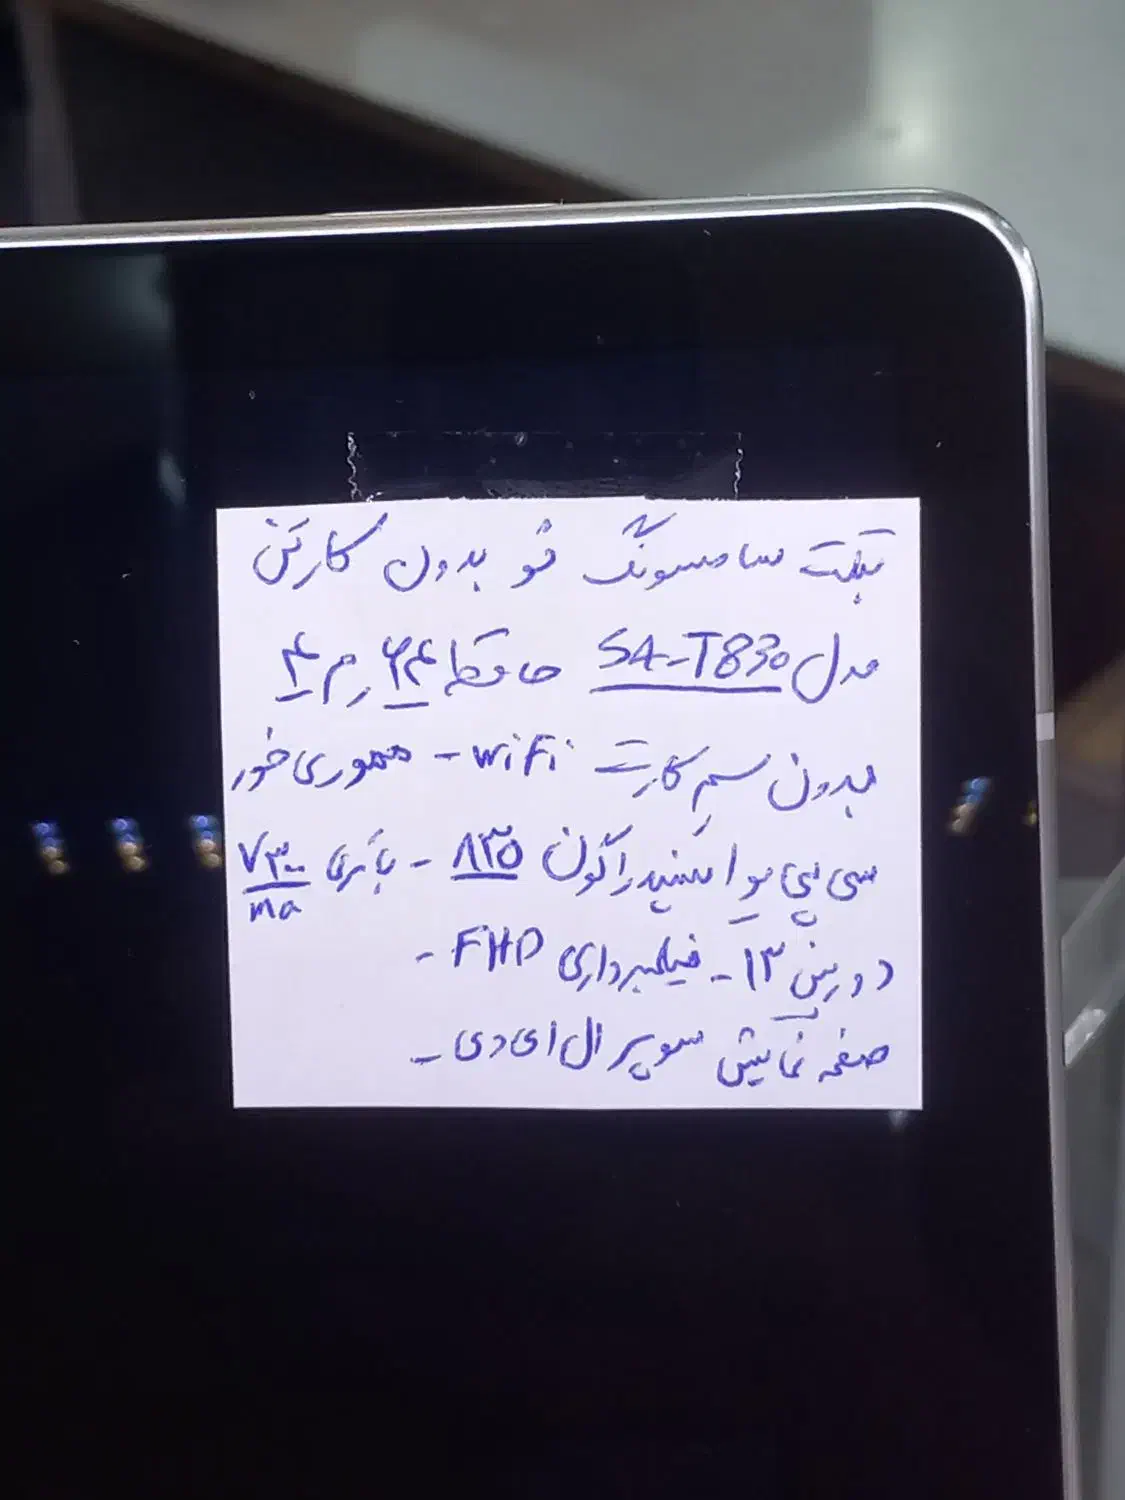 تبلت سامسونگ نو بدون کارتن
مدل SA-T830 حافظه ۶۴ رم ۴
بدون سیم کارت wiFi - مموری خور
سی پی یو اسنپدراگون ۸۳۵ - باتری ۷۳۰۰ ma
دوربین ۱۳ - فیلمبرداری FHD -
صفحه نمایش سوپر ال ای دی -